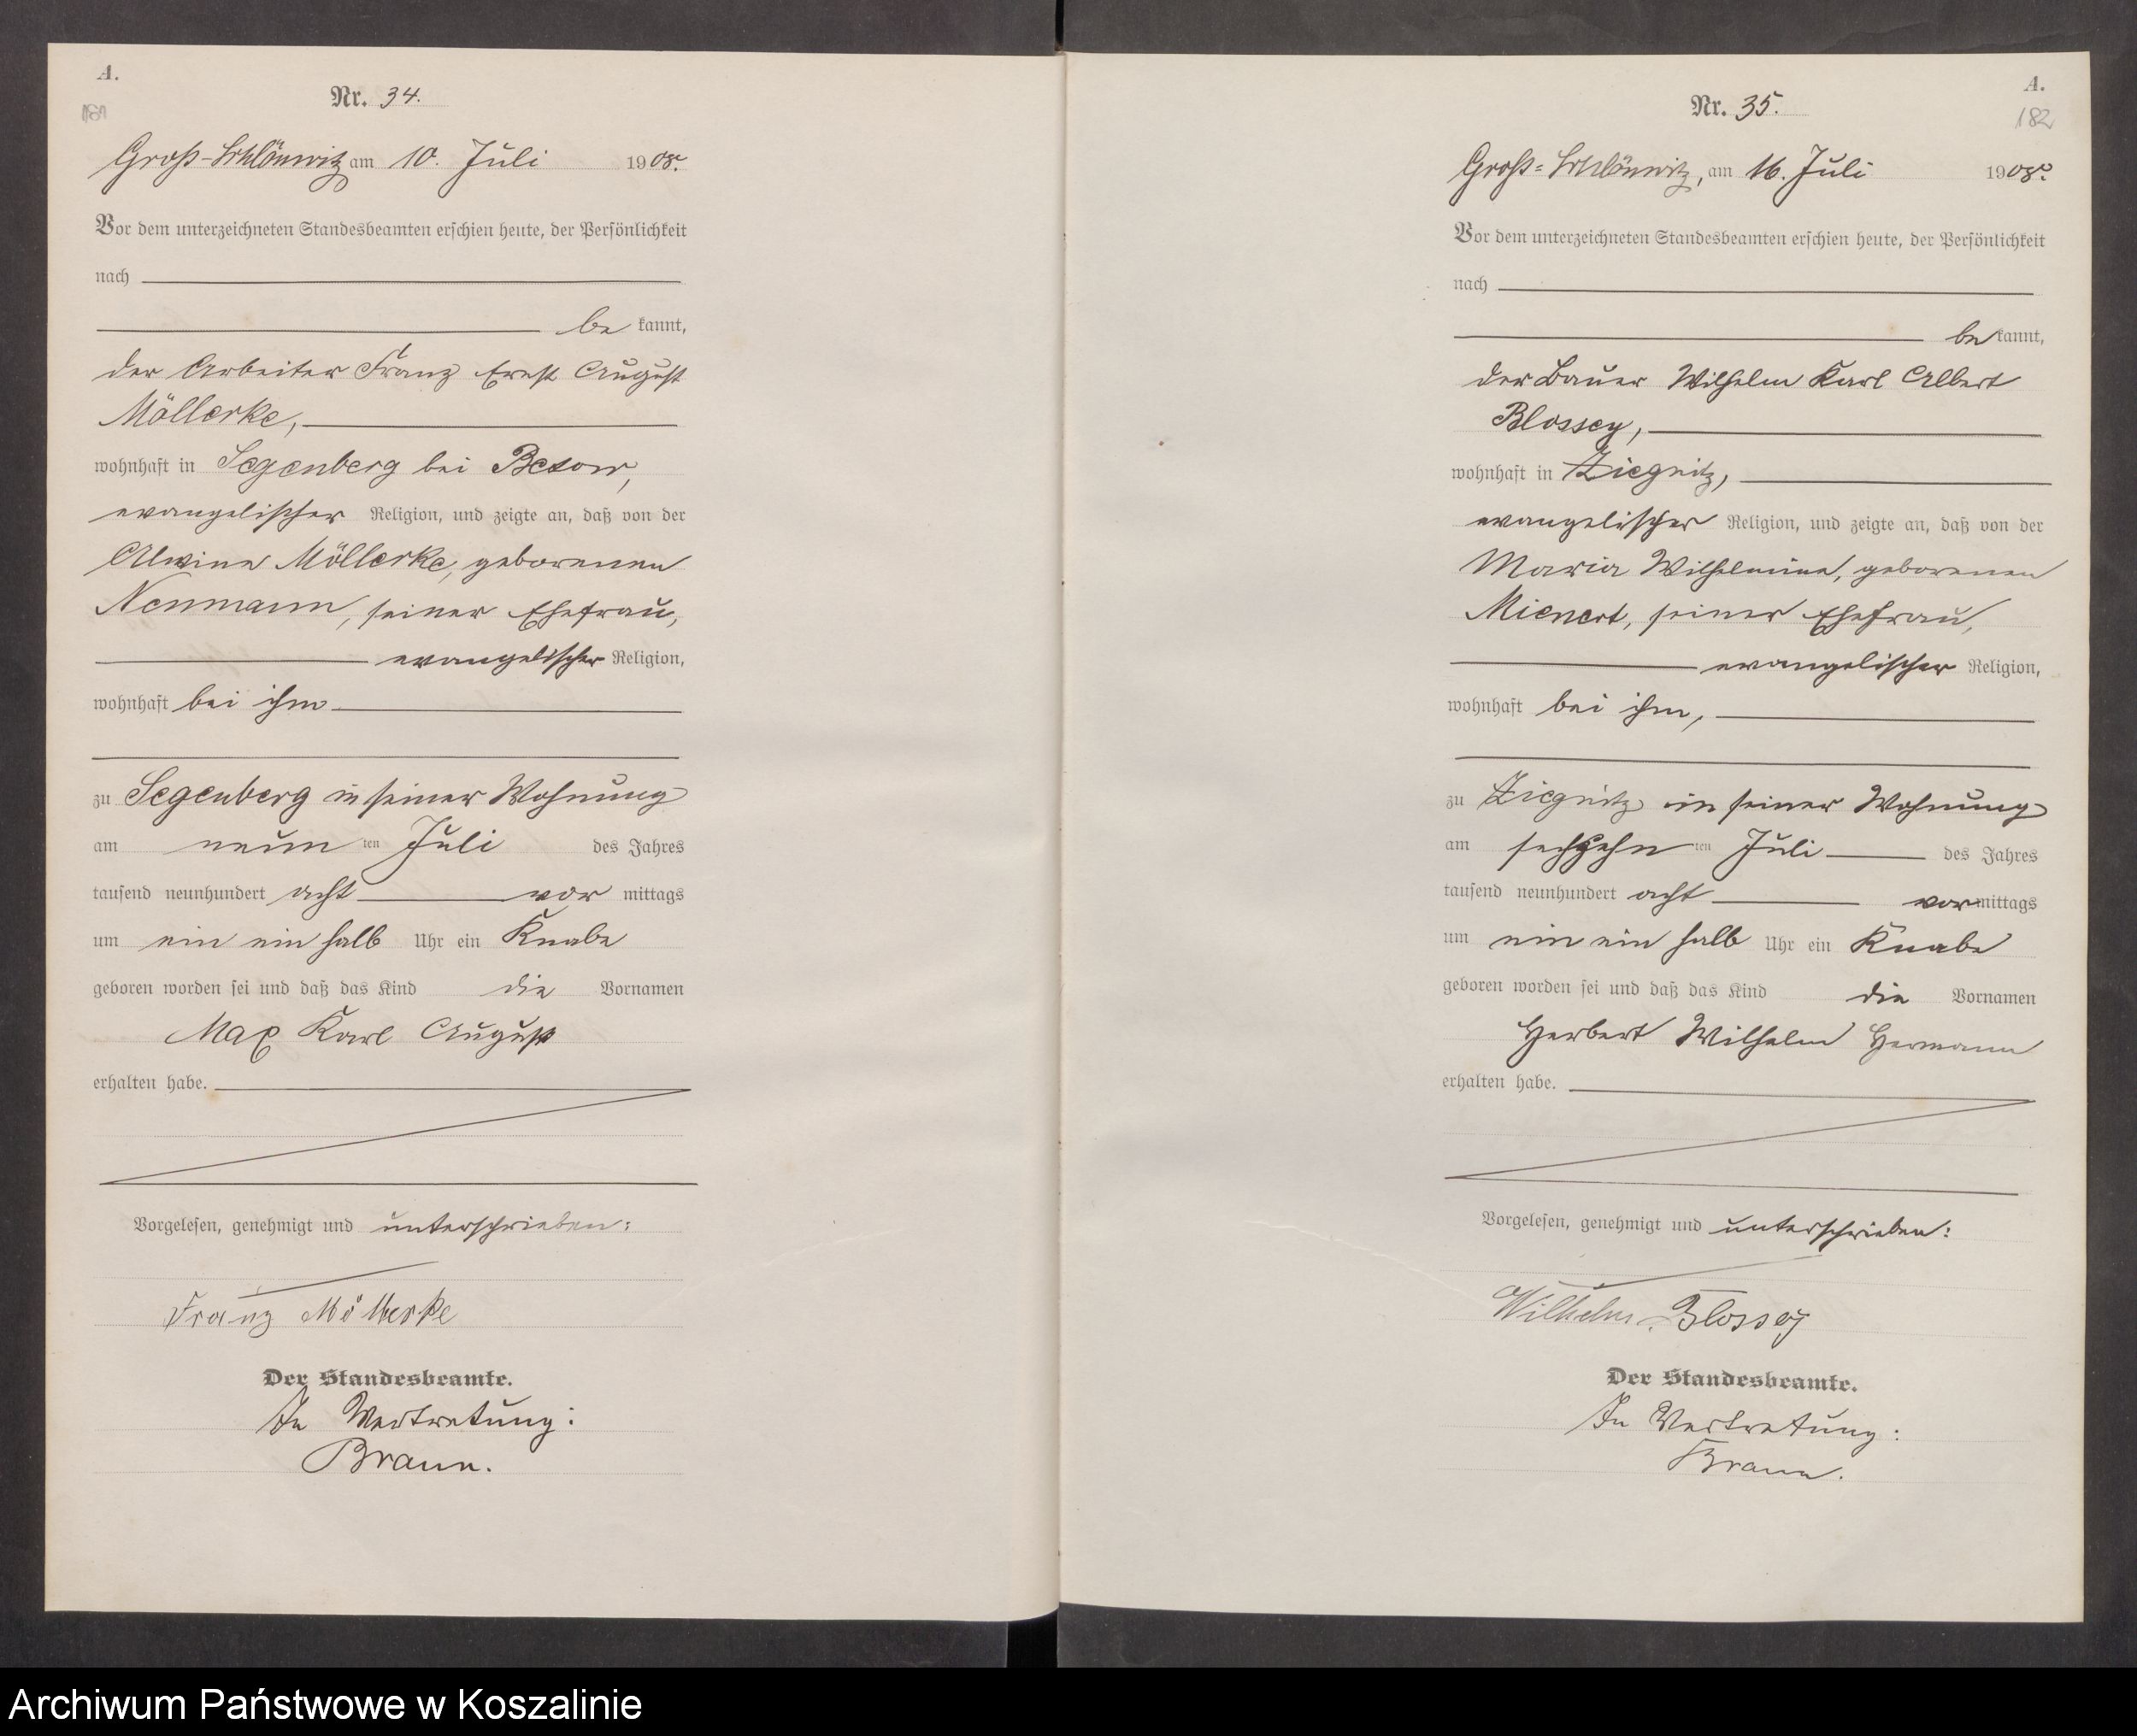 A.
181
Nr. 34.
Groß-Schlönwitz am 10. Juli 1908.
Vor dem unterzeichneten Standesbeamten erschien heute, der Persönlichkeit
nach
be kannt,
der Arbeiter Franz Ernst August
Möllerke,
wohnhaft in Segenberg bei Besow,
evangelischer Religion, und zeigte an, daß von der
Alwine Möllerke, geborenen
Neumann, seiner Ehefrau,
evangelischer Religion,
wohnhaft bei ihm
zu Segenberg in seiner Wohnung
am neun ten Juli des Jahres
tausend neunhundert acht vor mittags
um ein ein halb Uhr ein Knabe
geboren worden sei und daß das Kind die Vornamen
Max Karl August
erhalten habe.
Vorgelesen, genehmigt und unterschrieben:
Franz Möllerke
Der Standesbeamte.
In Vertretung:
Braun.
A.
182
Nr. 35.
Groß-Schlönwitz, am 16. Juli 1908.
Vor dem unterzeichneten Standesbeamten erschien heute, der Persönlichkeit
nach
be kannt,
der Bauer Wilhelm Karl Albert
Blossey,
wohnhaft in Ziegnitz,
evangelischer Religion, und zeigte an, daß von der
Maria Wilhelmine, geborenen
Mienert, seiner Ehefrau,
evangelischer Religion,
wohnhaft bei ihm,
zu Ziegnitz in seiner Wohnung
am sechzehn ten Juli des Jahres
tausend neunhundert acht vor mittags
um ein ein halb Uhr ein Knabe
geboren worden sei und daß das Kind die Vornamen
Herbert Wilhelm Hermann
erhalten habe.
Vorgelesen, genehmigt und unterschrieben:
Wilhelm Blossey
Der Standesbeamte.
In Vertretung:
Braun.
Archiwum Państwowe w Koszalinie